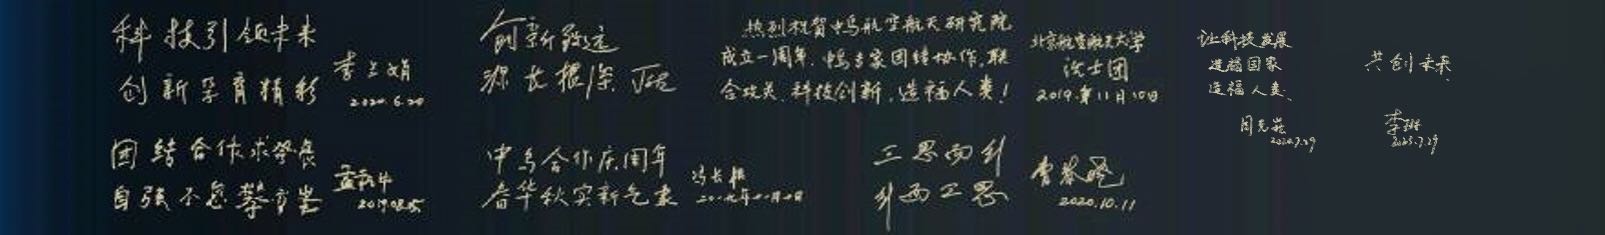 科技引领未来
创新孕育精彩
李兰娟
2020.6.20
创新致远
源长根深
热烈祝贺中乌航空航天研究院
成立一周年，中乌专家团结协作，联
合攻关，科技创新，造福人类！
北京航空航天大学
沈士团
2019年11月10日
让科技发展
造福国家
造福人类、
周克崧
2020.7.29
共创未来
李琳
团结合作求发展
自强不息攀高峰
中乌合作庆周年
春华秋实新气象
冯长根
三思而行
行而三思
曹春晓
2020.10.11